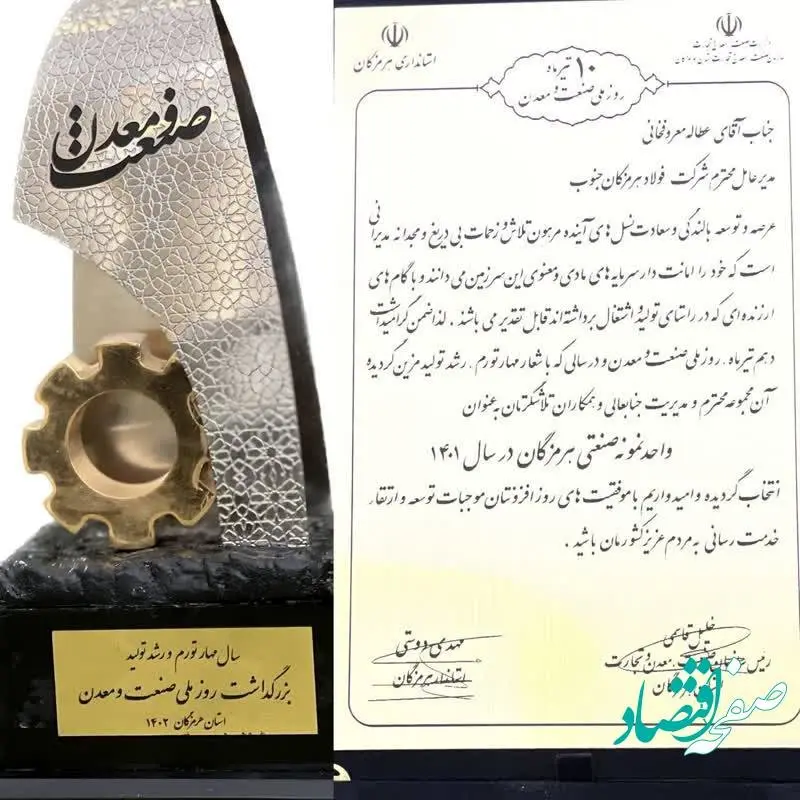 صنعت و معدن
سال مهار تورم و رشد تولید
بزرگداشت روز ملی صنعت و معدن
استان هرمزگان ۱۴۰۲
استانداری هرمزگان
۱۰ تیرماه
روز ملی صنعت و معدن
جناب آقای عطااله معروفخانی
مدیرعامل محترم شرکت فولاد هرمزگان جنوب
عرصه و توسعه بالندگی و سعادت نسل های آینده مرهون تلاش و زحمات بی دریغ و مجدانه مدیرانی
است که خود را امانت دار سرمایه های مادی و معنوی این سرزمین می دانند و با گام های
ارزنده ای که در راستای تولید و اشتغال برداشته اند قابل تقدیر می باشند . لذا ضمن گرامیداشت
دهم تیرماه ، روز ملی صنعت و معدن و در سالی که با شعار مهار تورم ، رشد تولید مزین گردیده
آن مجموعه محترم و مدیریت جنابعالی و همکاران تلاشگرتان به عنوان
واحد نمونه صنعتی هرمزگان در سال ۱۴۰۱
انتخاب گردیده و امیدواریم با موفقیت های روز افزونتان موجبات توسعه و ارتقاء
خدمت رسانی به مردم عزیز کشورمان باشید .
خلیل قاسمی
مهدی دوستی
استاندار هرمزگان
صفحه اقتصاد